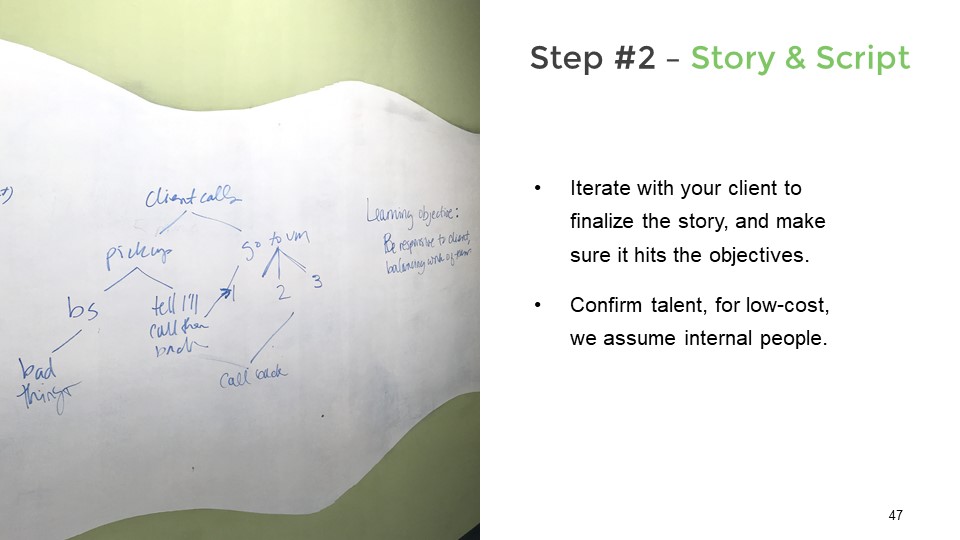 Client calls
pickup
go to vm
bs
tell I'll
call then
back
1
2
3
bad
things
call back
Learning objective:
Be responsive to client,
balancing work of team
Step #2 – Story & Script
• Iterate with your client to
finalize the story, and make
sure it hits the objectives.
• Confirm talent, for low-cost,
we assume internal people.
47